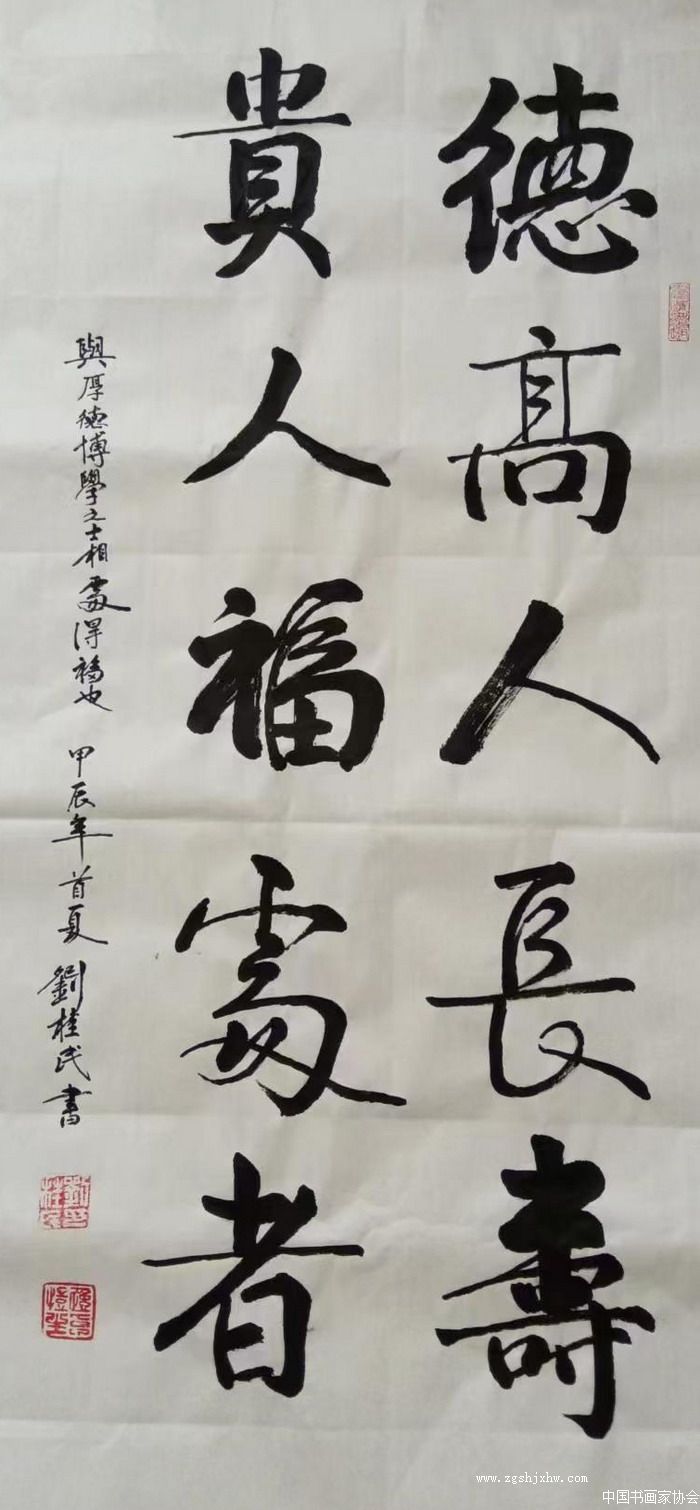 德高人長壽
貴人福處者
與厚德博學之士相處得福也 甲辰年首夏 劉桂民書
劉桂民印
www.zgshjxhw.com
中国书画家协会